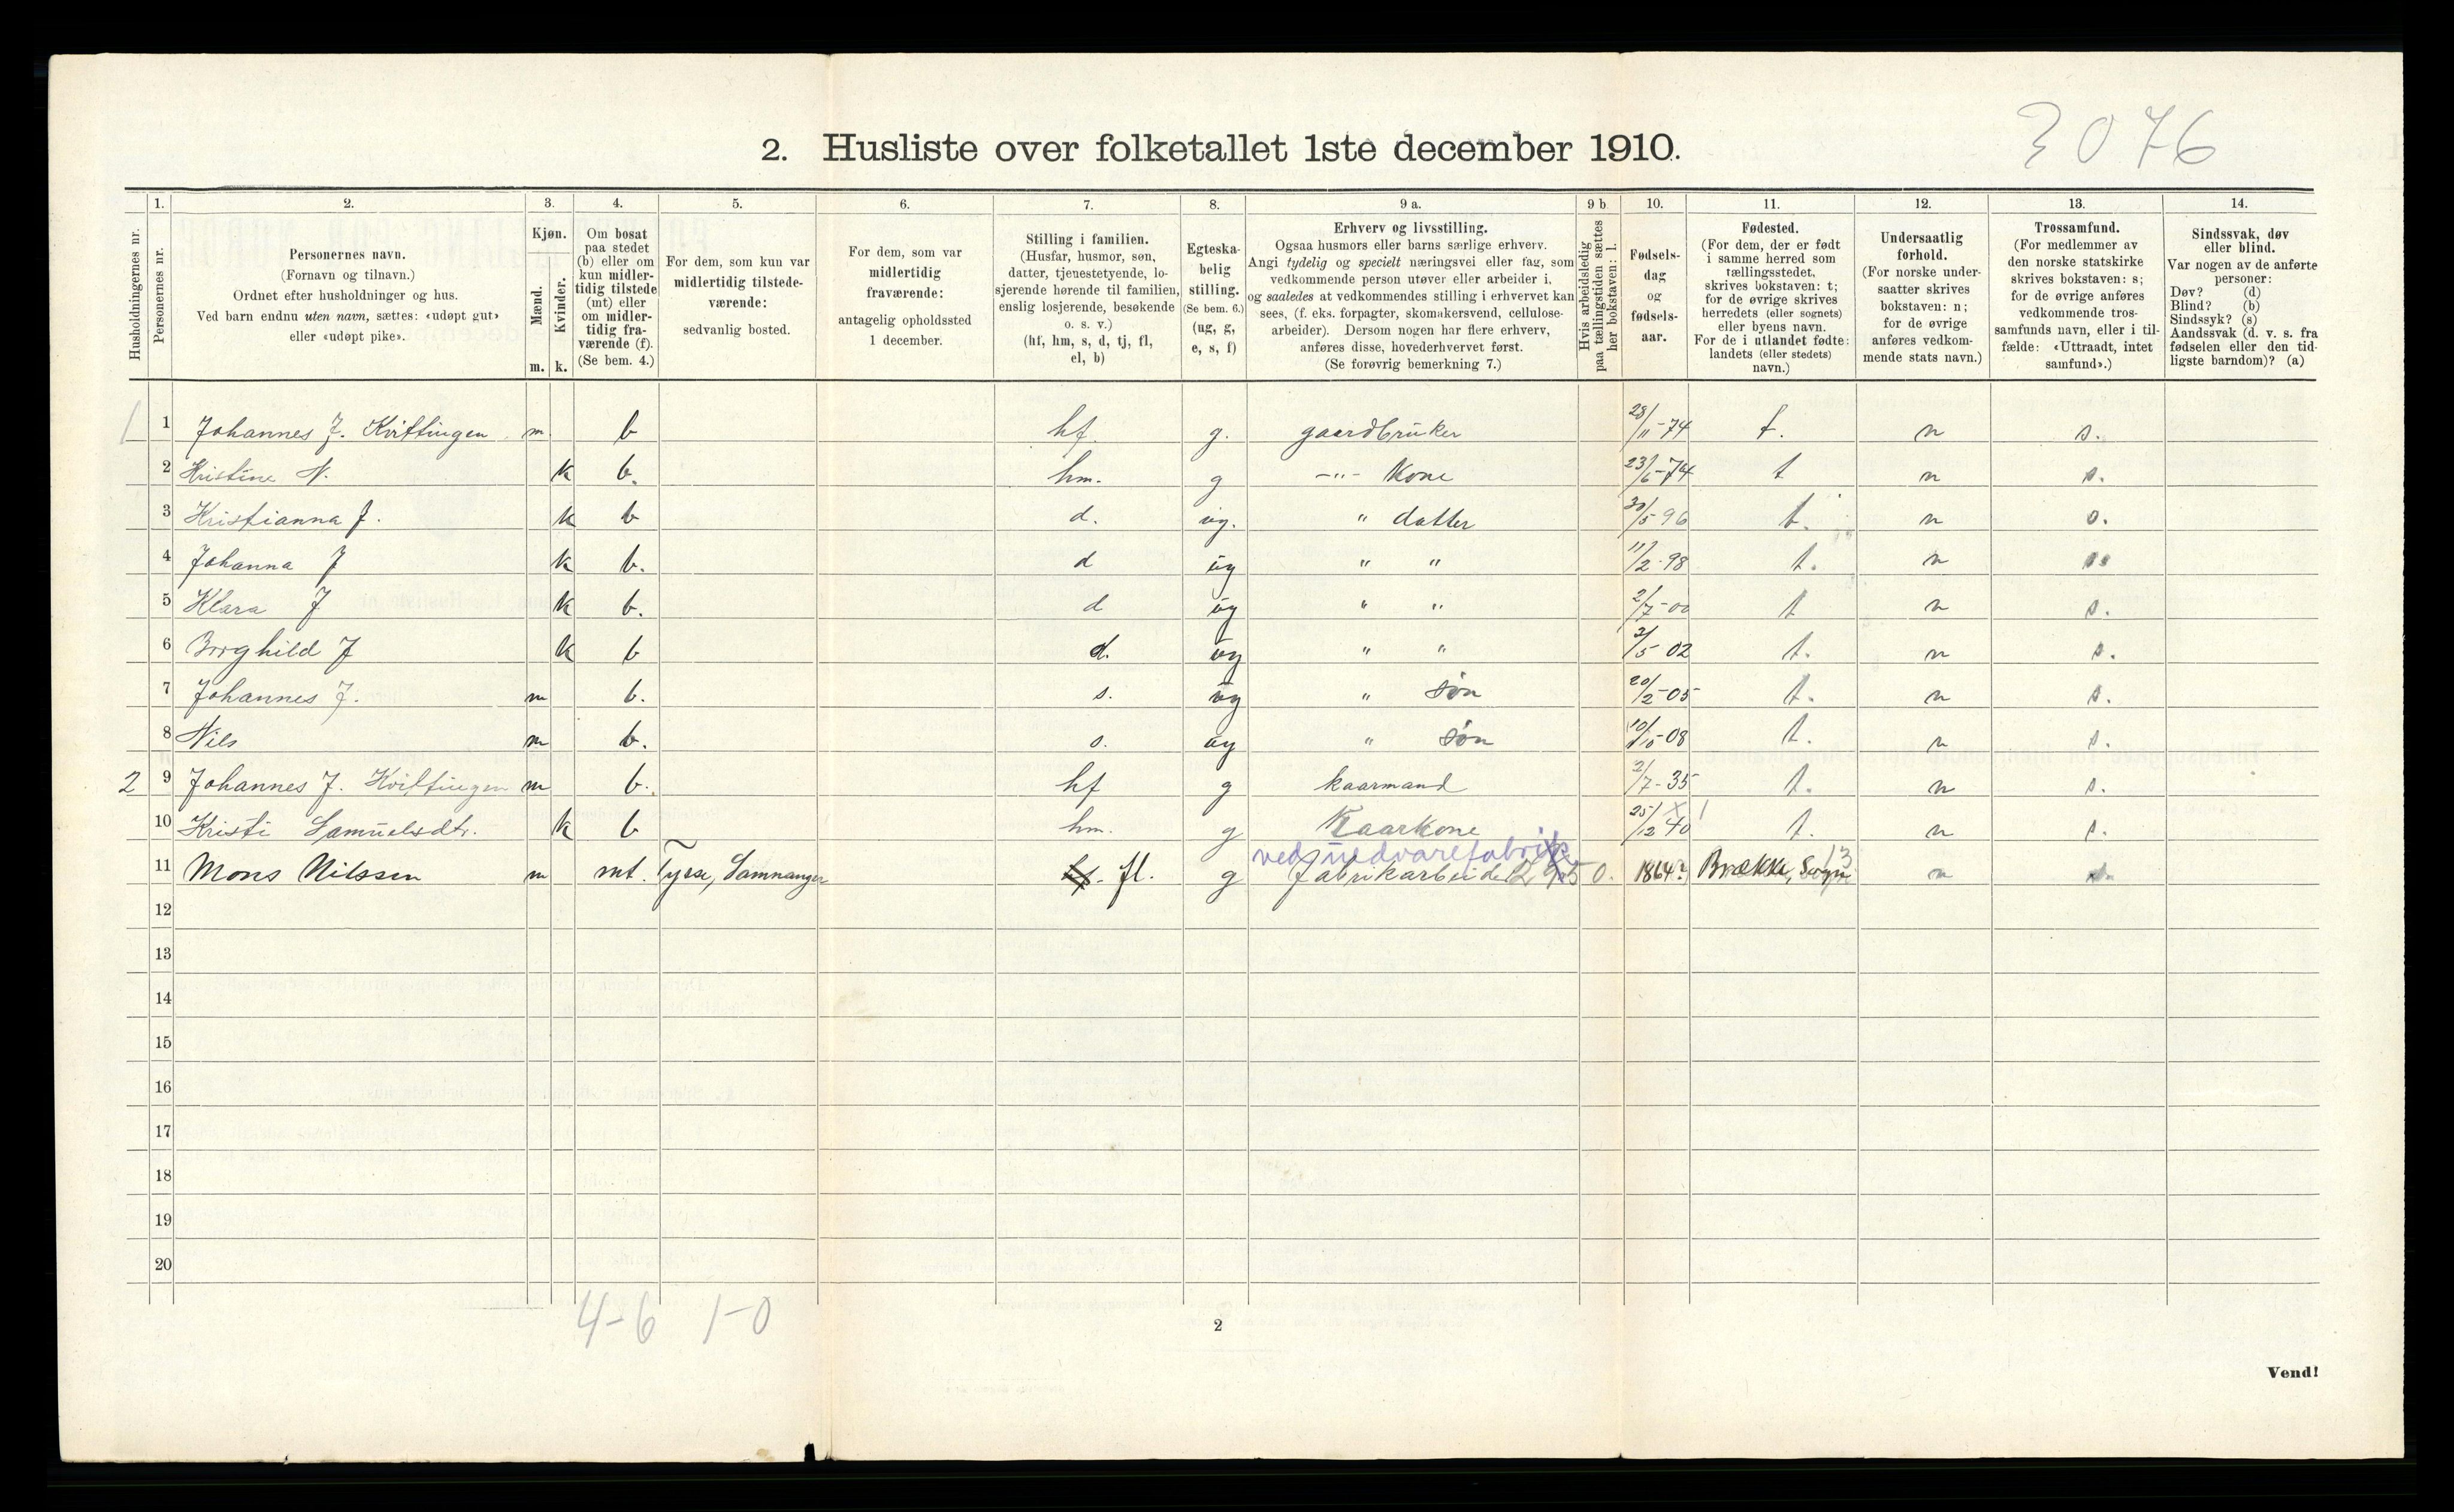 3076
2. Husliste over folketallet 1ste december 1910.
Husholdningernes nr.
1.
Personernes nr.
2.
Personernes navn.
(Fornavn og tilnavn.)
Ordnet efter husholdninger og hus.
Ved barn endnu uten navn, sættes: «udøpt gut»
eller «udøpt pike».
3.
Kjøn.
Mænd.
Kvinder.
m. k.
4.
Om bosat
paa stedet
(b) eller om
kun midler-
tidig tilstede
(mt) eller
om midler-
tidig fra-
værende (f).
(Se bem. 4.)
5.
For dem, som kun var
midlertidig tilstede-
værende:
sedvanlig bosted.
6.
For dem, som var
midlertidig
fraværende:
antagelig opholdssted
1 december.
7.
Stilling i familien.
(Husfar, husmor, søn,
datter, tjenestetyende, lo-
sjerende hørende til familien,
enslig losjerende, besøkende
o. s. v.)
(hf, hm, s, d, tj, fl,
el, b)
8.
Egteska-
belig
stilling.
(Se bem. 6.)
(ug, g,
e, s, f)
9 a.
Erhverv og livsstilling.
Ogsaa husmors eller barns særlige erhverv.
Angi tydelig og specielt næringsvei eller fag, som
vedkommende person utøver eller arbeider i,
og saaledes at vedkommendes stilling i erhvervet kan
sees, (f. eks. forpagter, skomakersvend, cellulose-
arbeider). Dersom nogen har flere erhverv,
anføres disse, hovederhvervet først.
(Se forøvrig bemerkning 7.)
9 b
Hvis arbeidsledig
paa tællingstiden sættes
her bokstaven: l.
10.
Fødsels-
dag
og
fødsels-
aar.
11.
Fødested.
(For dem, der er født
i samme herred som
tællingsstedet,
skrives bokstaven: t;
for de øvrige skrives
herredets (eller sognets)
eller byens navn.
For de i utlandet fødte:
landets (eller stedets)
navn.)
12.
Undersaatlig
forhold.
(For norske under-
saatter skrives
bokstaven: n;
for de øvrige
anføres vedkom-
mende stats navn.)
13.
Trossamfund.
(For medlemmer av
den norske statskirke
skrives bokstaven: s;
for de øvrige anføres
vedkommende tros-
samfunds navn, eller i til-
fælde: «Uttraadt, intet
samfund».)
14.
Sindssvak, døv
eller blind.
Var nogen av de anførte
personer:
Døv? (d)
Blind? (b)
Sindssyk? (s)
Aandssvak (d. v. s. fra
fødselen eller den tid-
ligste barndom)? (a)
1 1 Johannes J. Kvittingen m b hf. g. gaardbruker 28/11-74 t. n s.
2 Kristine N. k b. hm. g -"- Kone 23/6-74 t n s.
3 Kristianna J. k b d. ug. " datter 30/5 96 t. n s.
4 Johanna J k b. d ug " " 11/2-98 t. n s
5 Klara J k b. d ug " " 2/7-00 t n s.
6 Borghild J k b d. ug " " 2/5 02 t. n s.
7 Johannes J. m b. s. ug " søn 20/2-05 t. n s.
8 Nils m b. s. ug " søn 10/10-08 t. n s.
2 9 Johannes J. Kvittingen m b. hf g kaarmand 2/7-35 t. n s.
10 Kristi Samuelsdtr. k b hm. g Kaarkone 25/12 40 t. n s.
ved uldvarefabrik
11 Mons Nilssen m mt. Tysse, Samnanger fl. g Fabrikarbeider 0. 1864? Brække, Sogn 13 n s.
12
13
14
15
16
17
18
19
20
4-6 1-0
2
Vend!